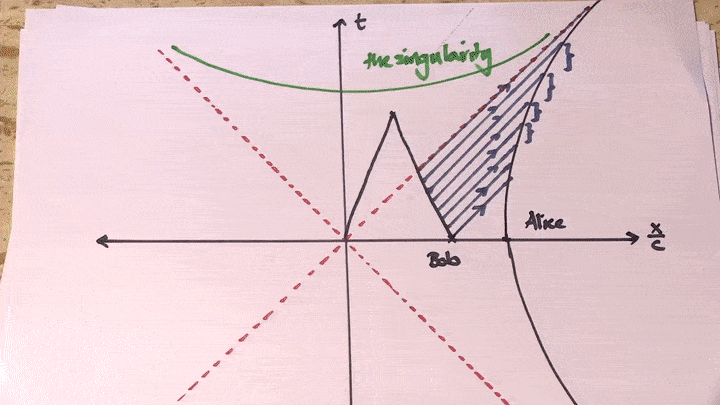 t
the singularity
Alice
x/c
Bob